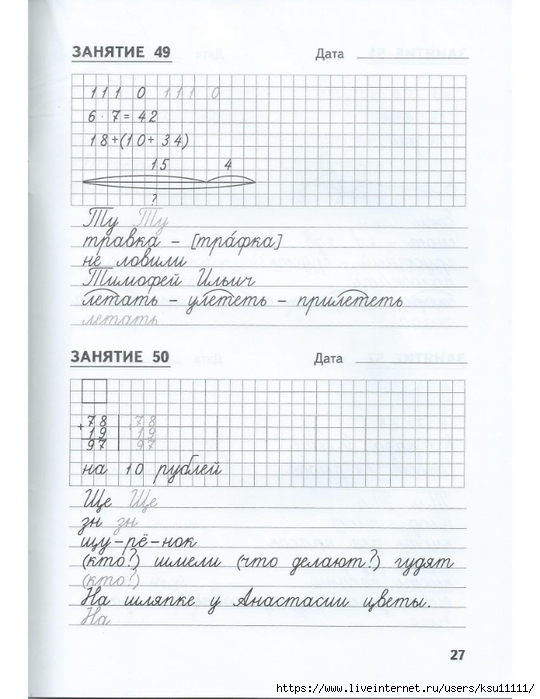 ЗАНЯТИЕ 49 Дата
1 1 1 0 1 1 1 0
6 · 7 = 42
18+(10+34)
15 4
?
Ту Ту
травка – [тра́фка]
не ловили
Тимофей Ильич
летать – улететь – прилететь
летать
ЗАНЯТИЕ 50 Дата
+78 78
19 19
97 97
на 10 рублей
Ще Ще
зн зн
щу-рё-нок
(кто?) шмели (что делают?) гудят
(кто?)
На шляпке у Анастасии цветы.
На
27
https://www.liveinternet.ru/users/ksu11111/